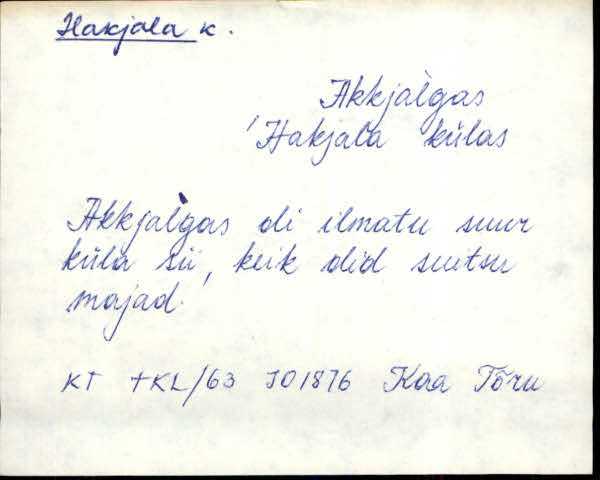 Hakjala k.
Akkjal̀gas
'Hakjala külas
Akkjal̀gas oli ilmatu suur
küla sii, keik olid suitsu
majad.
KT +KL/63 JO1876 Kaa Tõru